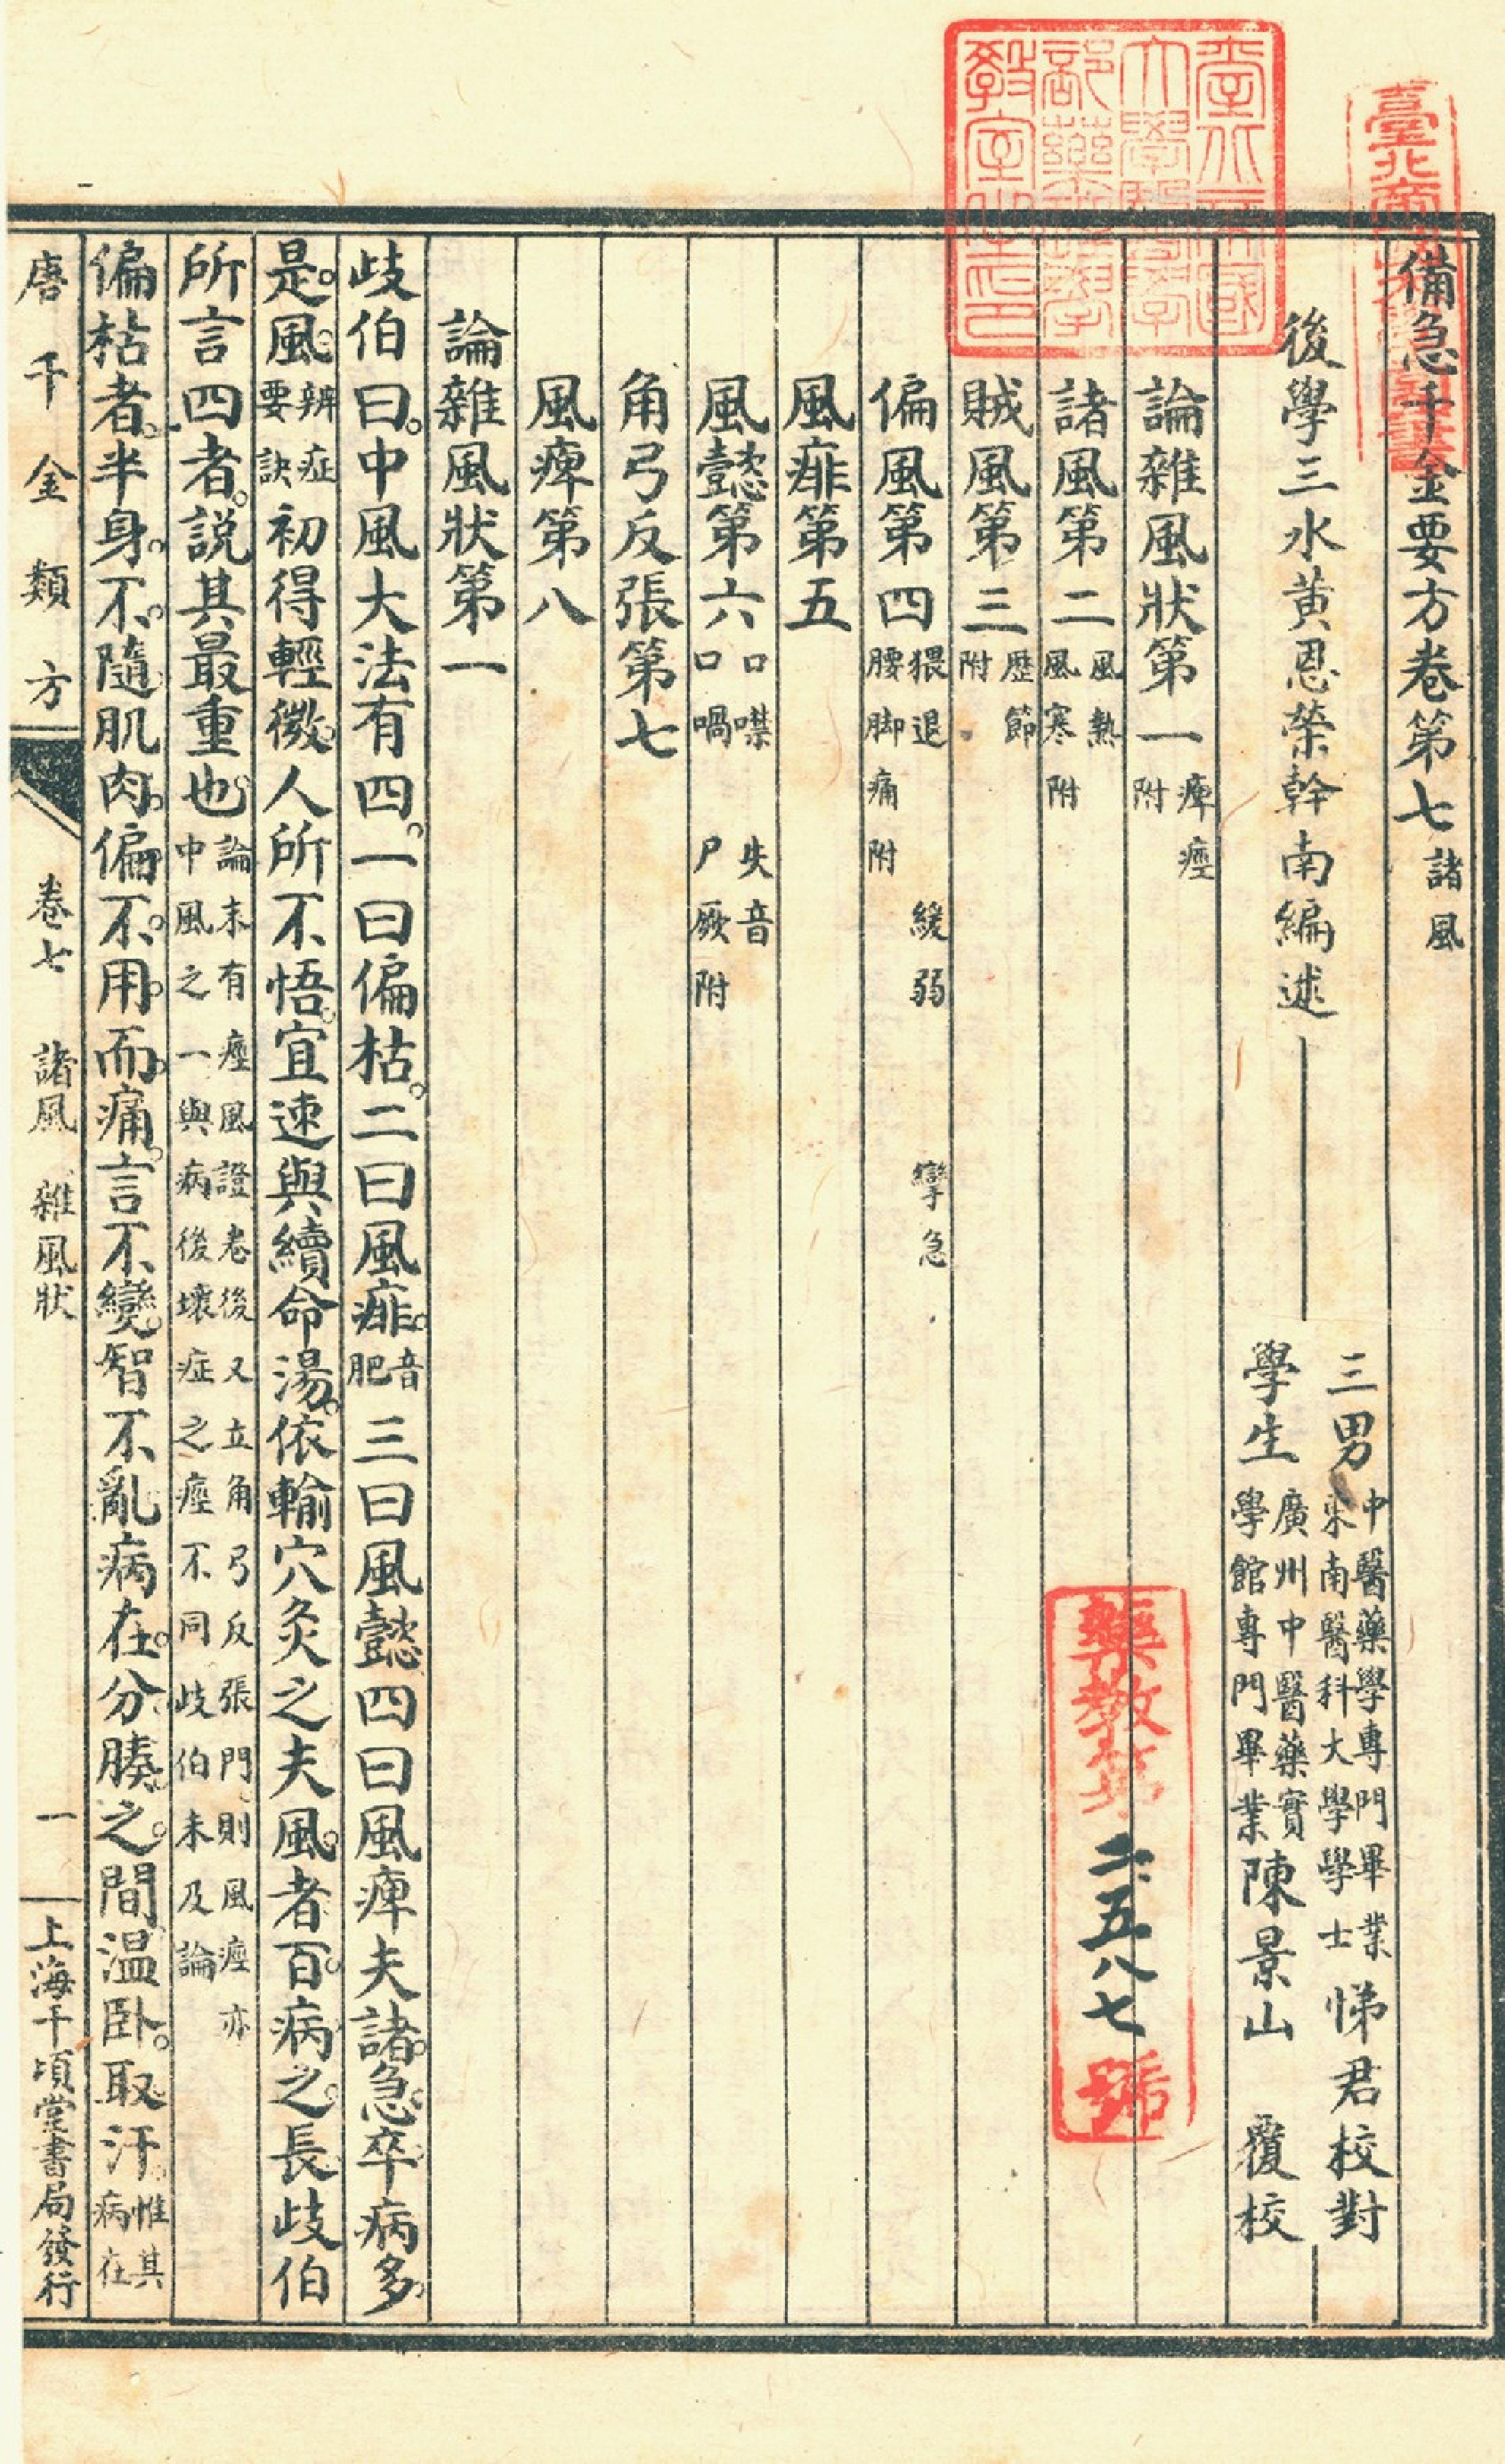 備急千金要方卷第七諸風
後學三水黃恩榮幹南編述
三男
中醫藥學專門畢業
東南醫科大學學士
悌君校對
學生
廣州中醫藥實
學館專門畢業
陳景山 覆校
論雜風狀第一痺痙附
諸風第二風熱風寒附
賊風第三歷節附
偏風第四猥退 緩弱 攣急腰脚痛附
風痱第五
風懿第六口噤 失音口喎 尸厥附
角弓反張第七
風痺第八
論雜風狀第一
歧伯曰中風大法有四一曰偏枯二曰風痱音肥三曰風懿四曰風痺夫諸急卒病多
是風辨症要訣初得輕微人所不悟宜速與續命湯依輸穴灸之夫風者百病之長歧伯
所言四者說其最重也論末有痙風證卷後又立角弓反張門則風痙亦中風之一與病後壞症之痙不同歧伯未及論
偏枯者半身不隨肌肉偏不用而痛言不變智不亂病在分腠之間温卧取汗惟其病在
唐千金類方 卷七 諸風 雜風狀 一 上海千頃堂書局發行
臺北帝國大學醫學部藥理學教室之印
藥教第二五八七號